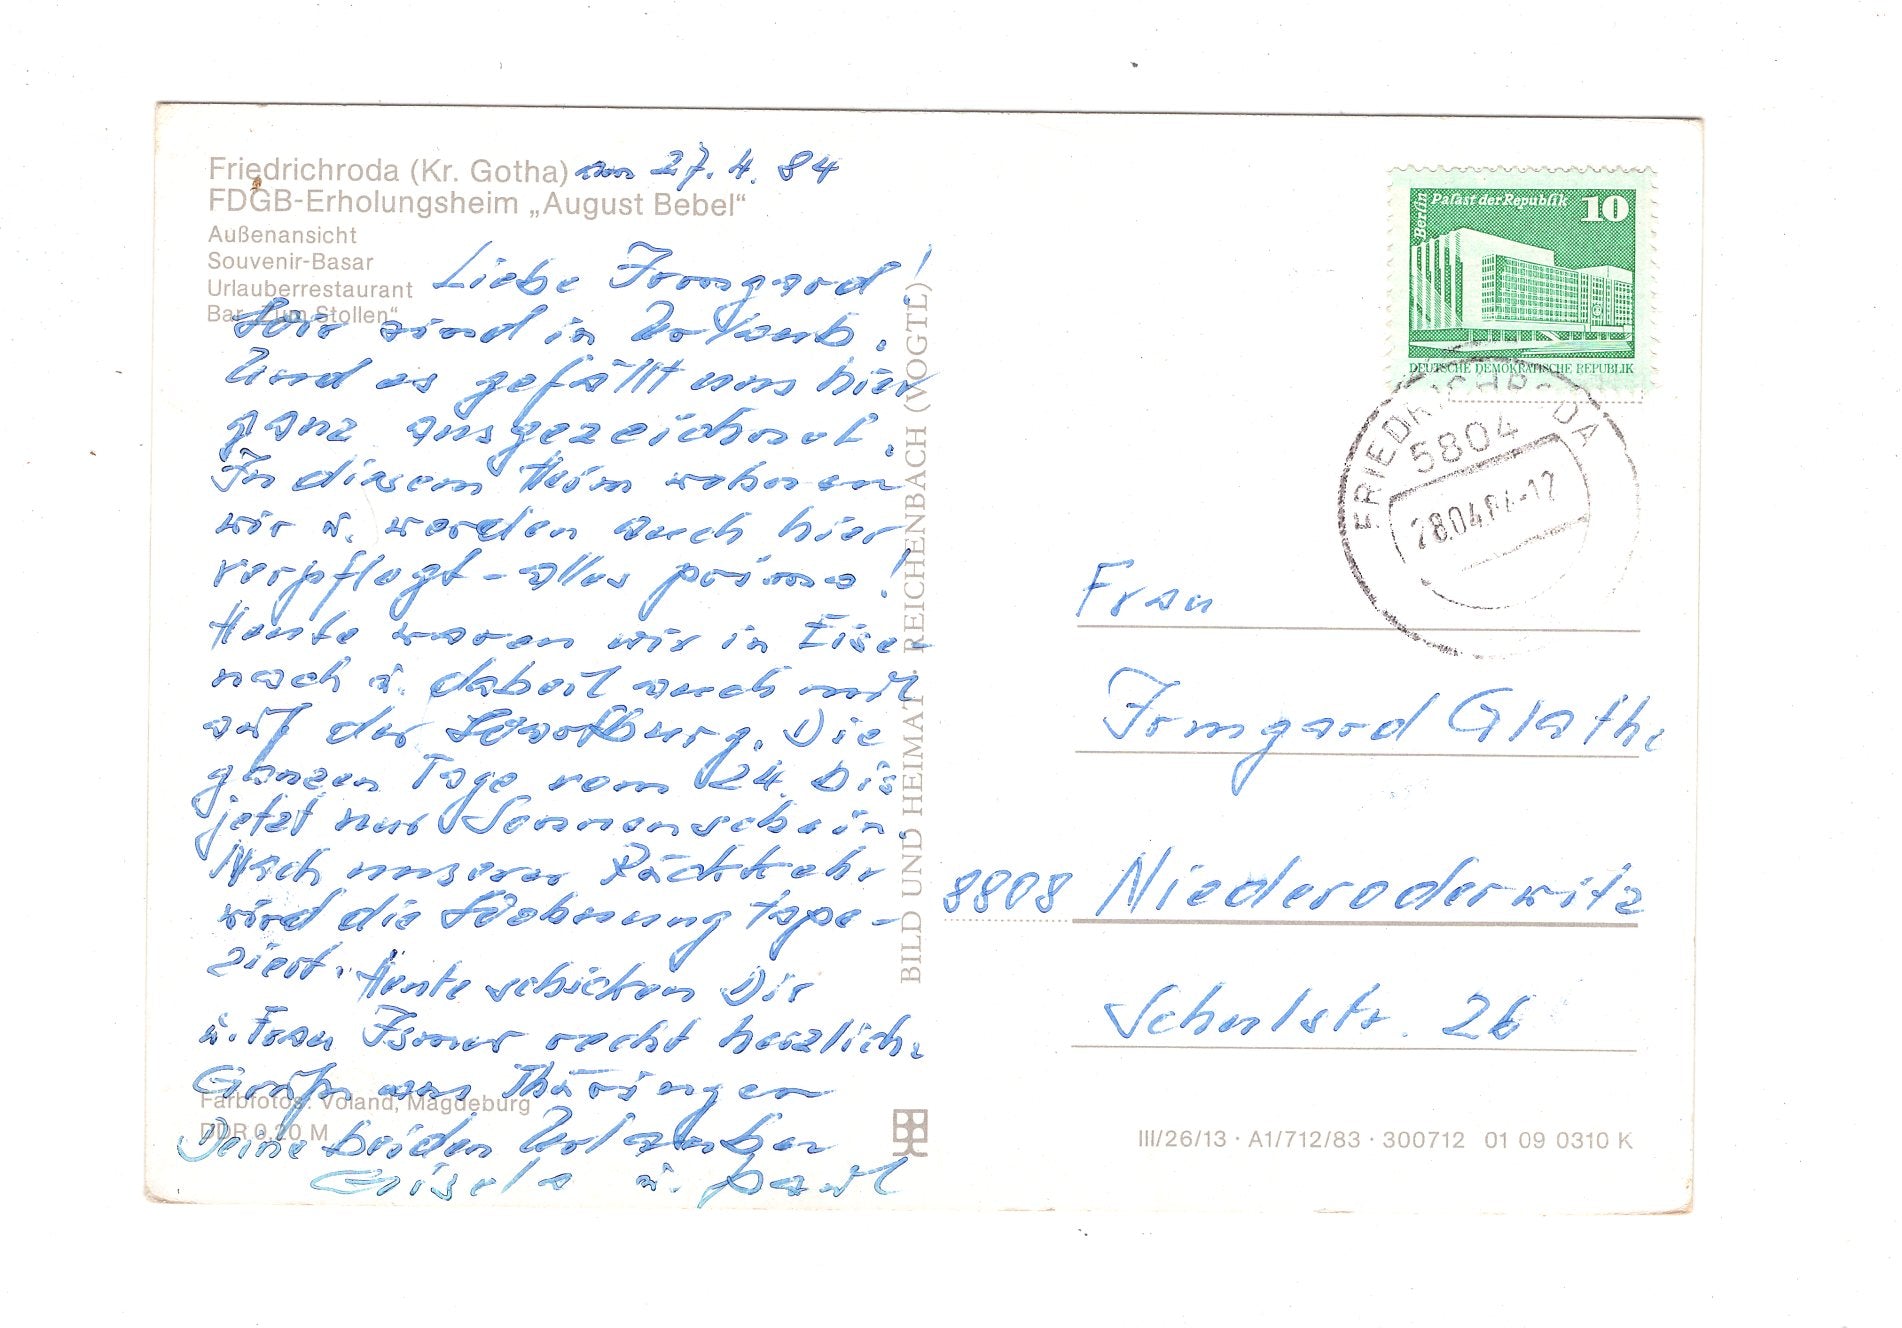 Friedrichroda (Kr. Gotha) am 27. 4. 84
FDGB-Erholungsheim „August Bebel“
Außenansicht
Souvenir-Basar
Urlauberrestaurant
Bar „Zum Stollen“
Liebe Irmgard!
Wir sind in Urlaub.
Und es gefällt uns hier
ganz ausgezeichnet.
In diesem Heim wohnen
wir u. werden auch hier
verpflegt - alles prima!
Heute waren wir in Eise
nach u. dabei auch mit
auf der Wartburg. Die
ganzen Tage vom 24. bis
jetzt nur Sonnenschein.
Nach unserer Rückkehr
wird die Wohnung tape-
ziert. Heute schicken Dir
u. Frau recht herzliche
Grüße aus Thüringen
Deine beiden Urlauber
Gisela u. Paul
Farbfotos: Voland, Magdeburg
DDR 0,20 M
BILD UND HEIMAT REICHENBACH (VOGTL)
Berlin
Palast der Republik 10
DEUTSCHE DEMOKRATISCHE REPUBLIK
FRIEDRICHRODA
5804
28.04.84-12
Frau
Irmgard Glathe
8808 Niederoderwitz
Schulstr. 26
III/26/13 · A1/712/83 · 300712 01 09 0310 K